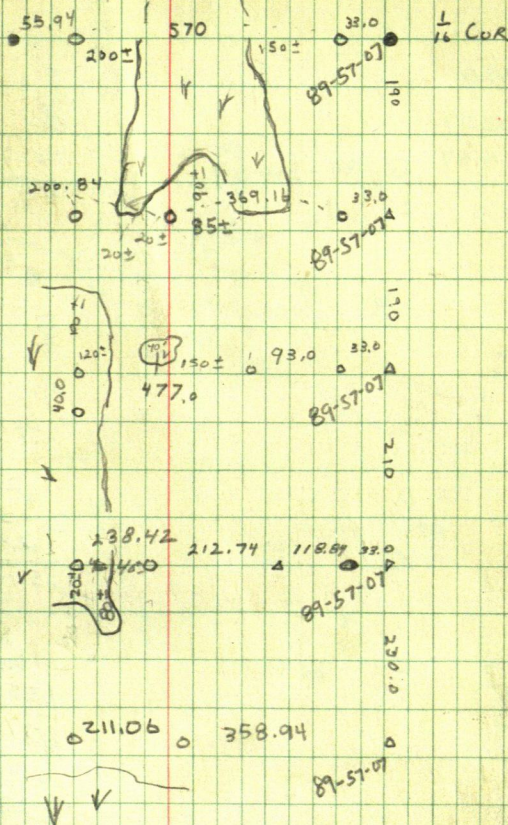 55.94 570 33.0 1/16 COR
200± 150± 89-57-07
190
200.84 100± 369.16 33.0
20± 85± 89-57-07
20±
190
120± 150± 93.0 33.0
477.0 89-57-07
40.0
210
238.42
212.74 118.89 33.0
20± 40± 89-57-07
80±
230.0
211.06 358.94
89-57-07